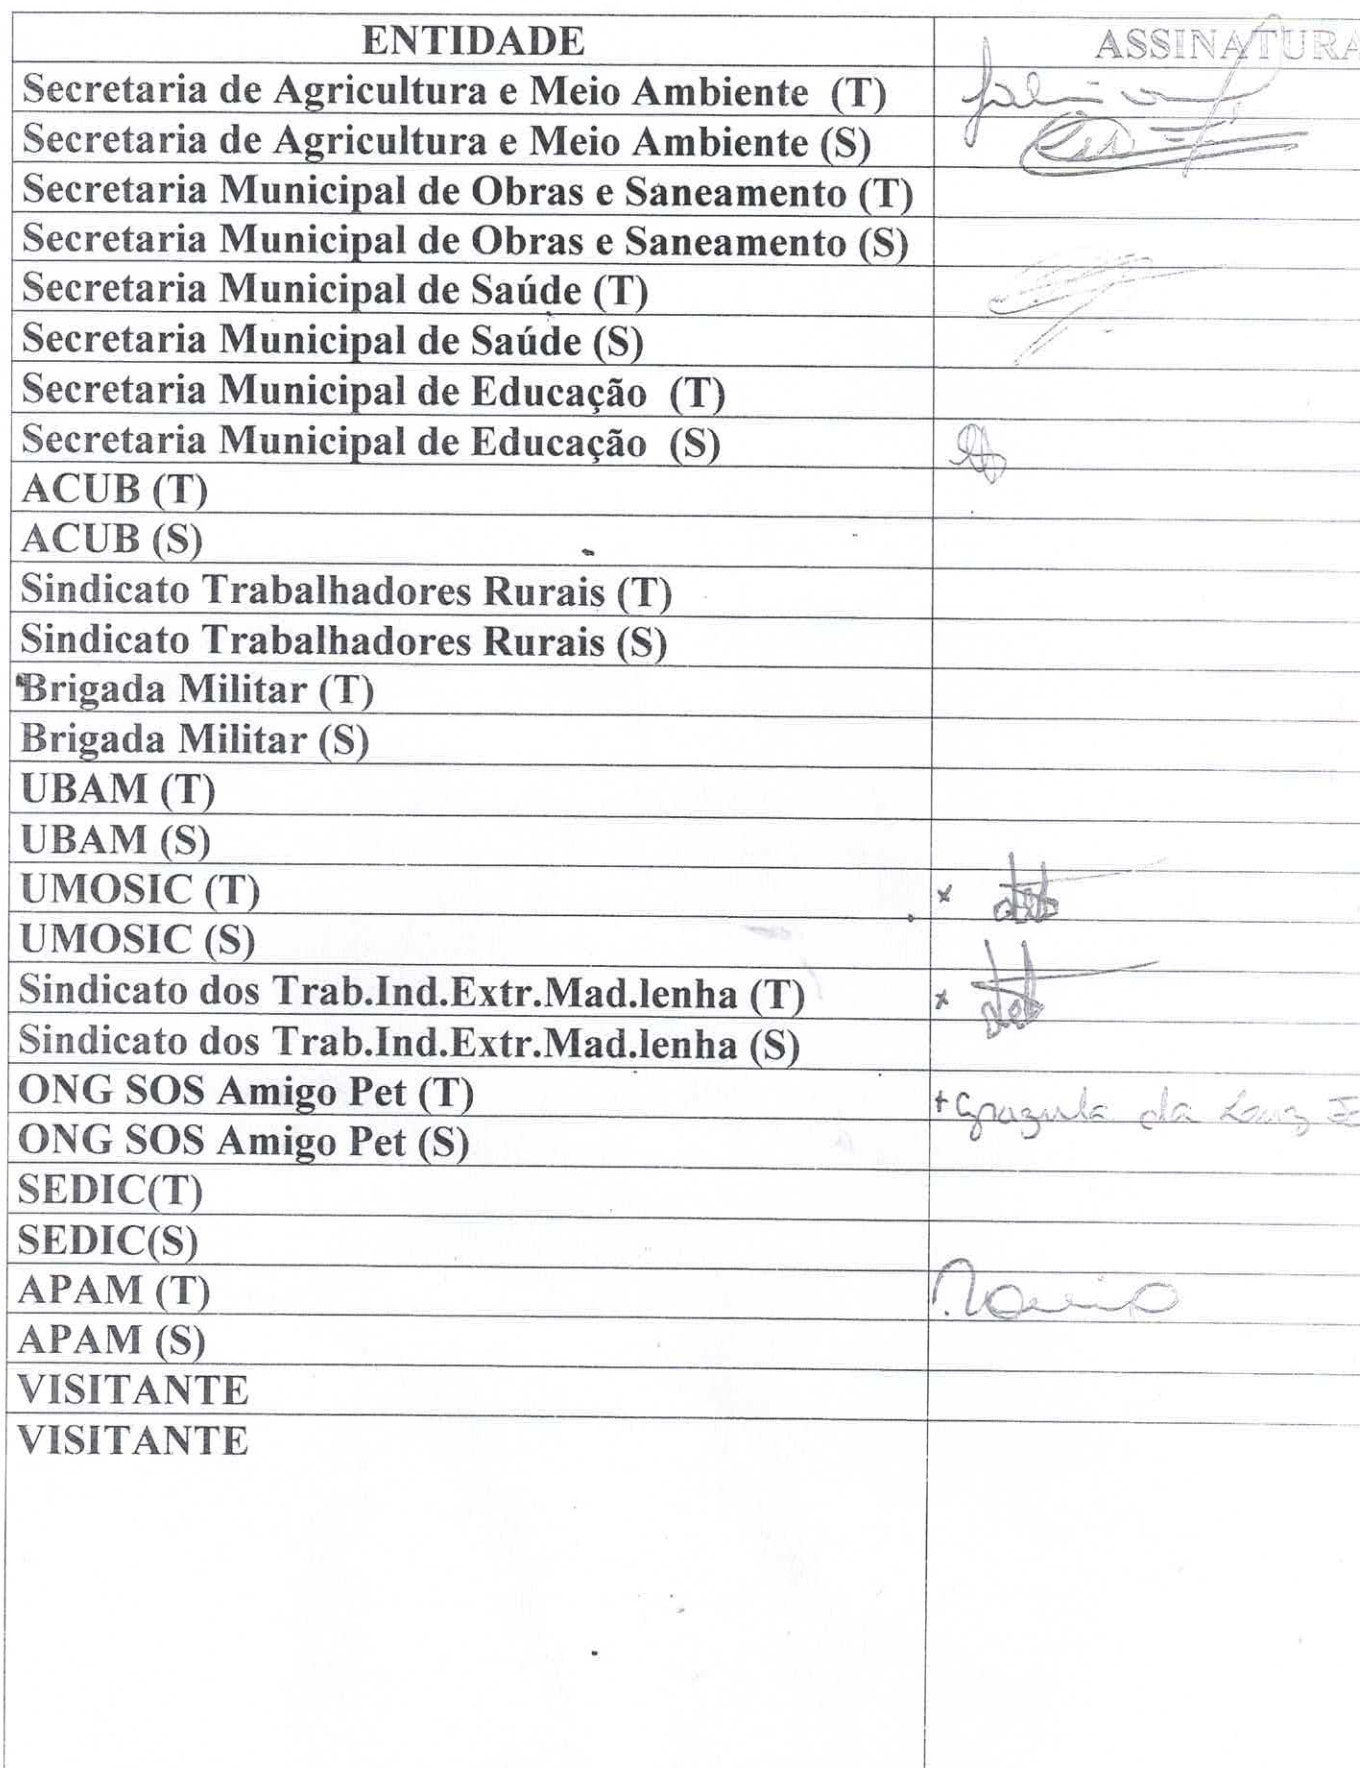 ENTIDADE ASSINATURA
Secretaria de Agricultura e Meio Ambiente (T)
Secretaria de Agricultura e Meio Ambiente (S)
Secretaria Municipal de Obras e Saneamento (T)
Secretaria Municipal de Obras e Saneamento (S)
Secretaria Municipal de Saúde (T)
Secretaria Municipal de Saúde (S)
Secretaria Municipal de Educação (T)
Secretaria Municipal de Educação (S)
ACUB (T)
ACUB (S)
Sindicato Trabalhadores Rurais (T)
Sindicato Trabalhadores Rurais (S)
Brigada Militar (T)
Brigada Militar (S)
UBAM (T)
UBAM (S)
UMOSIC (T) x
UMOSIC (S)
Sindicato dos Trab.Ind.Extr.Mad.lenha (T) x
Sindicato dos Trab.Ind.Extr.Mad.lenha (S)
ONG SOS Amigo Pet (T) + da Luz
ONG SOS Amigo Pet (S)
SEDIC(T)
SEDIC(S)
APAM (T)
APAM (S)
VISITANTE
VISITANTE